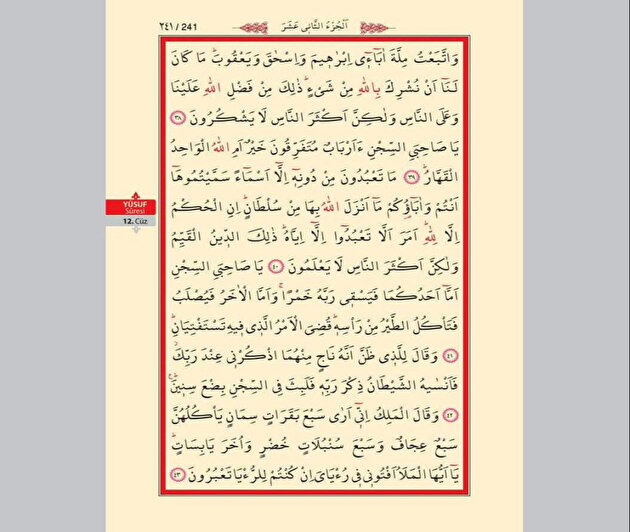 ٢٤١ / 241
اَلْجُزْءُ الثَّانِي عَشَرَ
وَاتَّبَعْتُ مِلَّةَ اٰبَٓاء۪ٓي اِبْرٰه۪يمَ وَاِسْحٰقَ وَيَعْقُوبَۜ مَا كَانَ
لَنَٓا اَنْ نُشْرِكَ بِاللّٰهِ مِنْ شَيْءٍۜ ذٰلِكَ مِنْ فَضْلِ اللّٰهِ عَلَيْنَا
وَعَلَى النَّاسِ وَلٰكِنَّ اَكْثَرَ النَّاسِ لَا يَشْكُرُونَ ﴿٣٨﴾
يَا صَاحِبَيِ السِّجْنِ ءَاَرْبَابٌ مُتَفَرِّقُونَ خَيْرٌ اَمِ اللّٰهُ الْوَاحِدُ
الْقَهَّارُۜ ﴿٣٩﴾ مَا تَعْبُدُونَ مِنْ دُونِه۪ٓ اِلَّٓا اَسْمَٓاءً سَمَّيْتُمُوهَٓا
اَنْتُمْ وَاٰبَٓاؤُ۬كُمْ مَٓا اَنْزَلَ اللّٰهُ بِهَا مِنْ سُلْطَانٍۜ اِنِ الْحُكْمُ
اِلَّا لِلّٰهِۜ اَمَرَ اَلَّا تَعْبُدُٓوا اِلَّٓا اِيَّاهُۜ ذٰلِكَ الدّ۪ينُ الْقَيِّمُ
وَلٰكِنَّ اَكْثَرَ النَّاسِ لَا يَعْلَمُونَ ﴿٤٠﴾ يَا صَاحِبَيِ السِّجْنِ
اَمَّٓا اَحَدُكُمَا فَيَسْق۪ي رَبَّهُ خَمْرًاۚ وَاَمَّا الْاٰخَرُ فَيُصْلَبُ
فَتَأْكُلُ الطَّيْرُ مِنْ رَأْسِه۪ۜ قُضِيَ الْاَمْرُ الَّذ۪ي ف۪يهِ تَسْتَفْتِيَانِۜ
﴿٤١﴾ وَقَالَ لِلَّذ۪ي ظَنَّ اَنَّهُ نَاجٍ مِنْهُمَا اذْكُرْن۪ي عِنْدَ رَبِّكَۘ
فَاَنْسٰيهُ الشَّيْطَانُ ذِكْرَ رَبِّه۪ فَلَبِثَ فِي السِّجْنِ بِضْعَ سِن۪ينَۜ۟
﴿٤٢﴾ وَقَالَ الْمَلِكُ اِنّ۪ٓي اَرٰى سَبْعَ بَقَرَاتٍ سِمَانٍ يَأْكُلُهُنَّ
سَبْعٌ عِجَافٌ وَسَبْعَ سُنْبُلَاتٍ خُضْرٍ وَاُخَرَ يَابِسَاتٍۜ
يَٓا اَيُّهَا الْمَلَأُ اَفْتُون۪ي ف۪ي رُءْيَايَ اِنْ كُنْتُمْ لِلرُّءْيَا تَعْبُرُونَ ﴿٤٣﴾
YÛSUF
Sûresi
12. Cüz